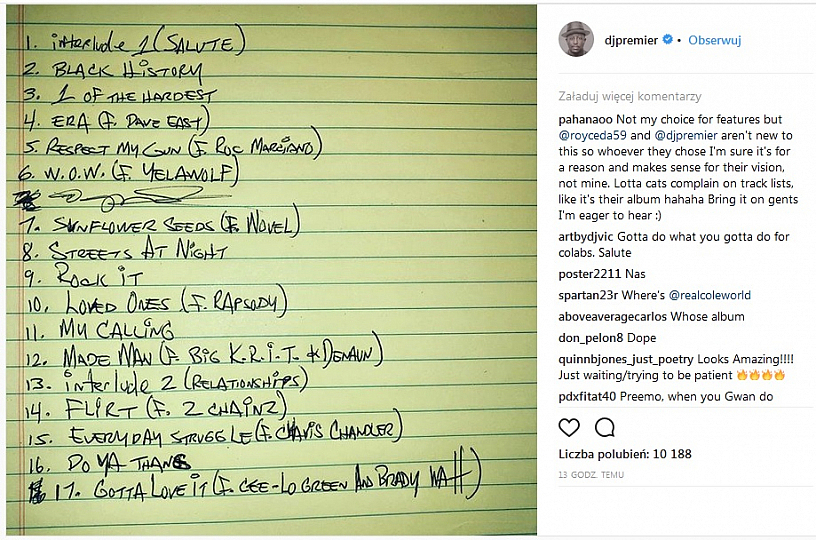 1. interlude 1 (SALUTE)
2. BLACK HiSTORY
3. 1 OF THE HARDEST
4. ERA (F. DAVE EAST)
5. RESPECT MY GUN (F. ROC MARCiANO)
6. W.O.W. (F. YELAWOLF)
7. SUNFLOWER SEEDS (F. NOVEL)
8. STREETS AT NiGHT
9. ROCK iT
10. LOVED ONES (F. RAPSODY)
11. MY CALLiNG
12. MADE MAN (F. BiG K.R.i.T. & DENAUN)
13. iNTERLUDE 2 (RELATiONSHiPS)
14. FLiRT (F. 2 CHAiNZ)
15. EVERYDAY STRUGGLE (F. CHAViS CHANDLER)
16. DO YA THANG
17. GOTTA LOVE iT (F. CEE-LO GREEN AND BRADY WATT)
djpremier • Obserwuj
Załaduj więcej komentarzy
pahanaoo Not my choice for features but
@royceda59 and @djpremier aren't new to
this so whoever they chose I'm sure it's for
a reason and makes sense for their vision,
not mine. Lotta cats complain on track lists,
like it's their album hahaha Bring it on gents
I'm eager to hear :)
artbydjvic Gotta do what you gotta do for
colabs. Salute
poster2211 Nas
spartan23r Where's @realcoleworld
aboveaveragecarlos Whose album
don_pelon8 Dope
quinnbjones_just_poetry Looks Amazing!!!!
Just waiting/trying to be patient 🔥🔥🔥🔥
pdxfitat40 Preemo, when you Gwan do
Liczba polubień: 10 188
13 GODZ. TEMU